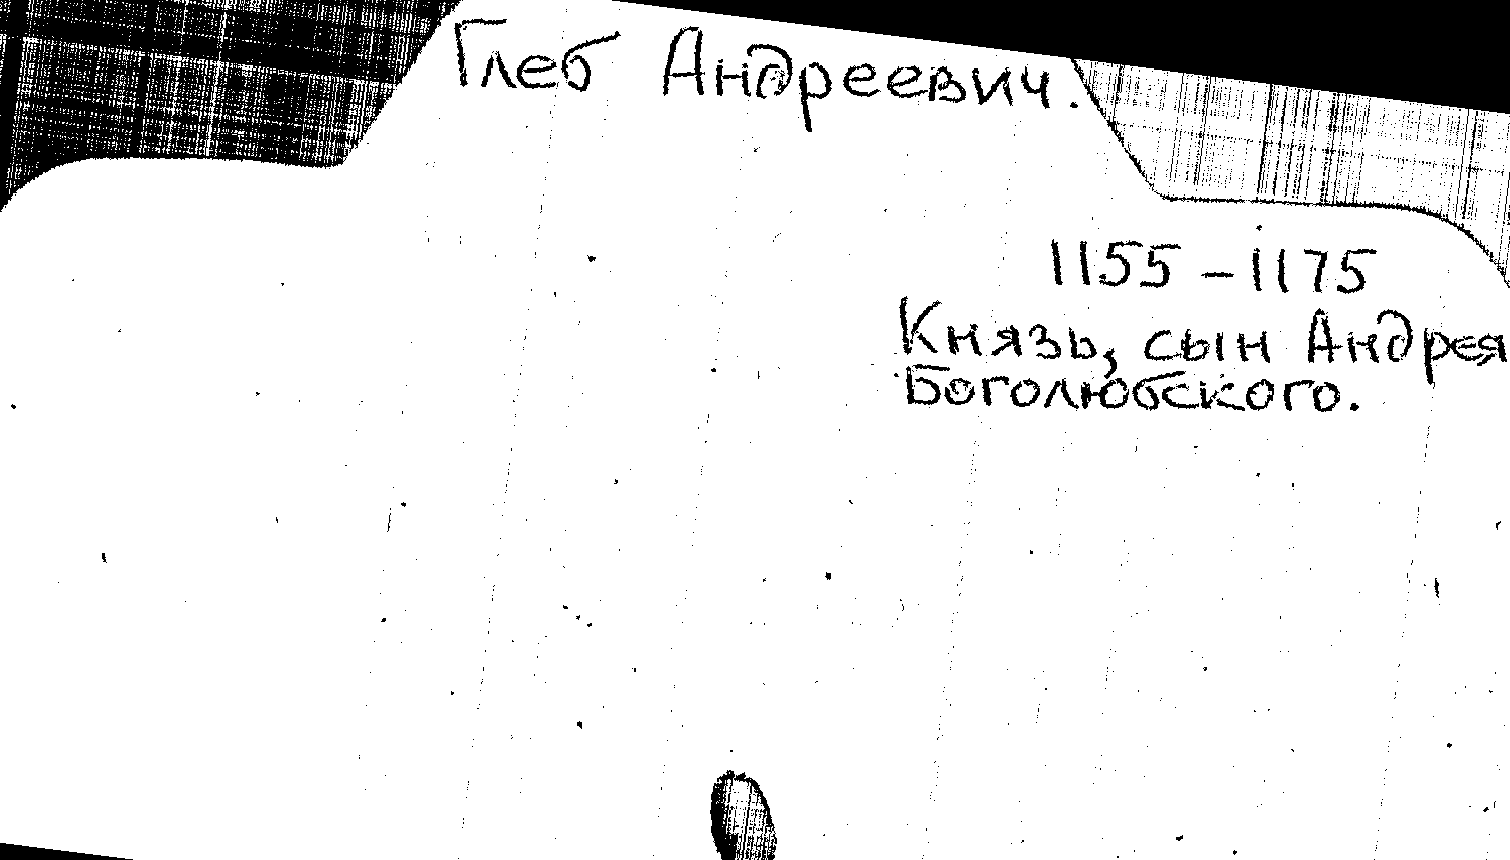 Глеб Андреевич.
1155 – 1175
Князь, сын Андрея
Боголюбского.